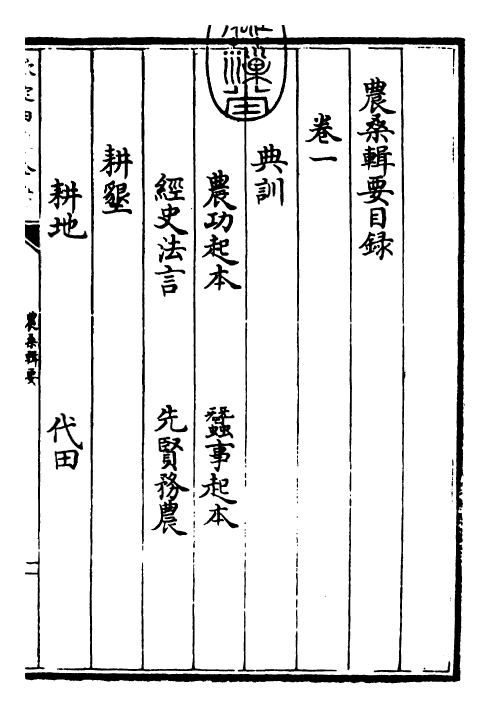 農桑輯要目録
卷一
典訓
農功起本　蠶事起本
經史法言　先賢務農
耕墾
耕地　代田
農桑輯要